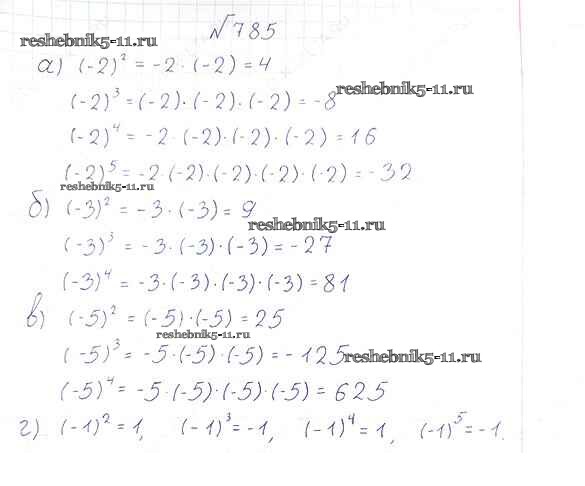 №785
reshebnik5-11.ru
а) (-2)² = -2·(-2) = 4
(-2)³ = (-2)·(-2)·(-2) = -8 reshebnik5-11.ru
(-2)⁴ = -2·(-2)·(-2)·(-2) = 16
(-2)⁵ = -2·(-2)·(-2)·(-2)·(-2) = -32
reshebnik5-11.ru
б) (-3)² = -3·(-3) = 9
reshebnik5-11.ru
(-3)³ = -3·(-3)·(-3) = -27
(-3)⁴ = -3·(-3)·(-3)·(-3) = 81
в) (-5)² = (-5)·(-5) = 25
reshebnik5-11.ru
(-5)³ = -5·(-5)·(-5) = -125 reshebnik5-11.ru
(-5)⁴ = -5·(-5)·(-5)·(-5) = 625
г) (-1)² = 1, (-1)³ = -1, (-1)⁴ = 1, (-1)⁵ = -1.